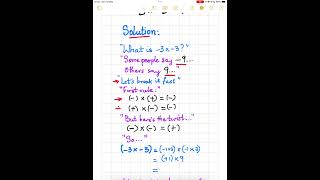 Solution:
"What is -3x-3?"
"Some people say -9...
Others say 9..."
"Let's break is fast"
"First rule:"
→ (-) × (+) = (-)
→ (+) × (-) = (-)
"But here's the twist..."
(-) × (-) = (+)
"So...."
(-3×-3) = (-1×3) × (-1×3)
= (+1) × 9
=